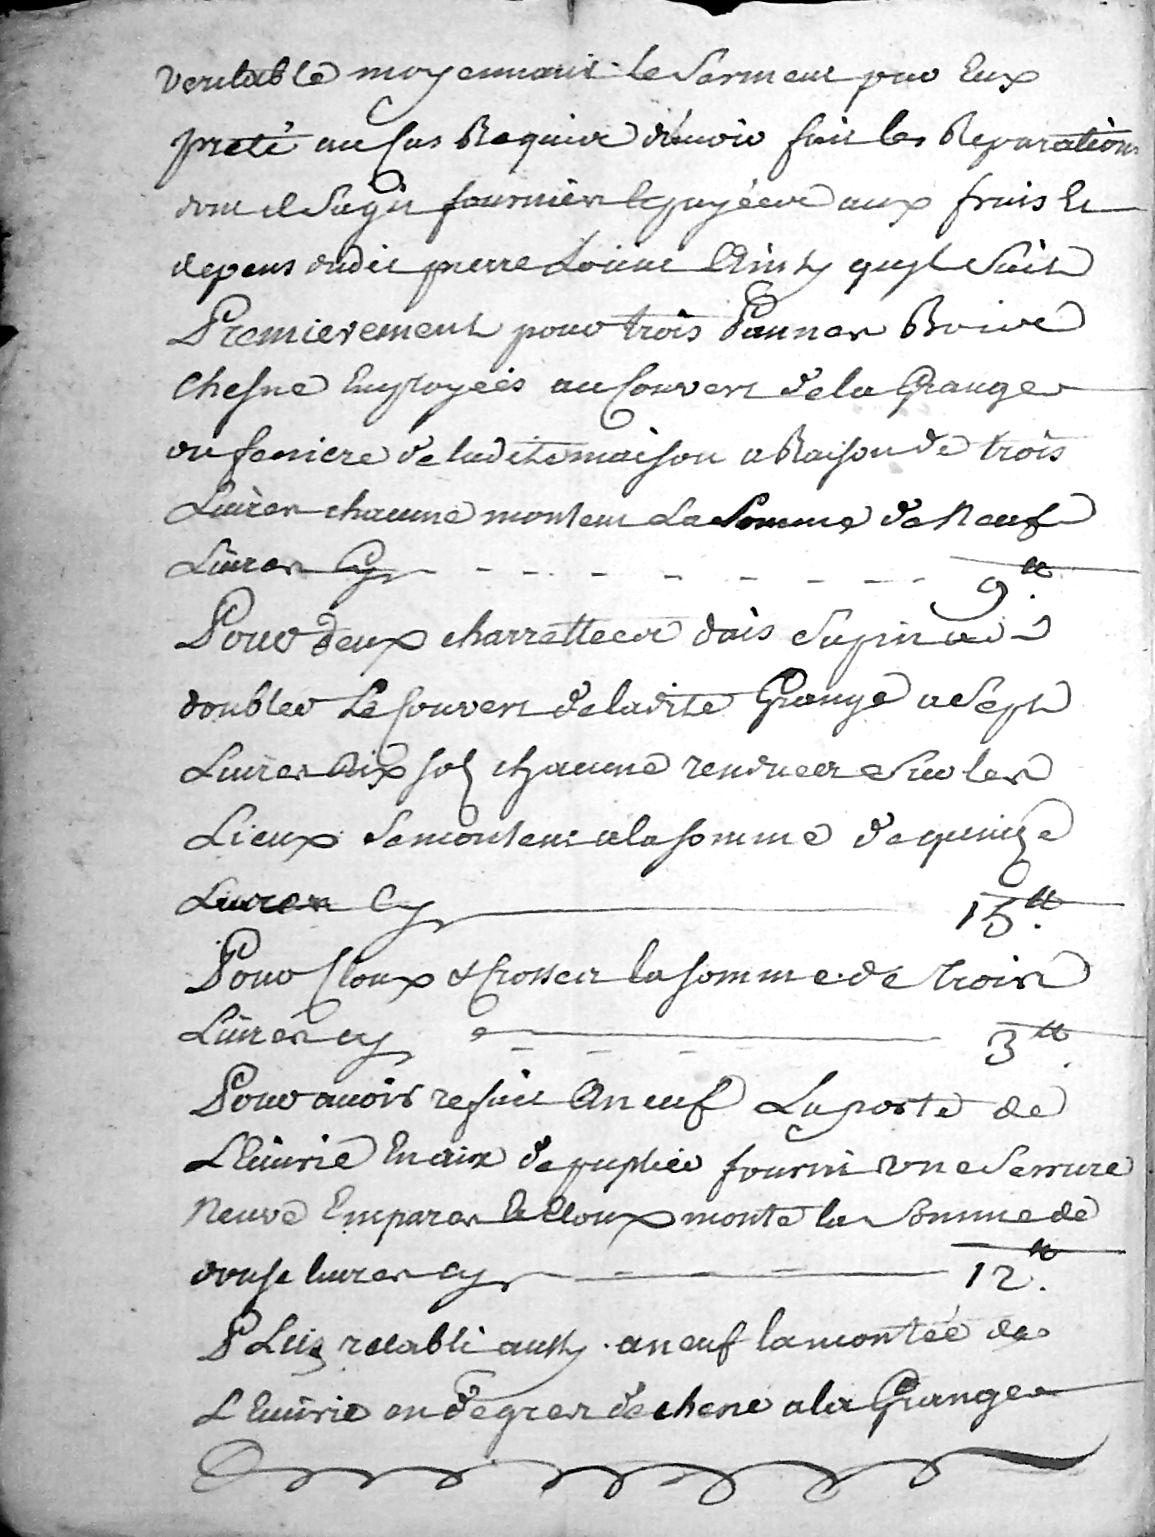 veritable moyennant le Serment par Eux
preté au Cas Requira d'avoir fait les Reparations
dont il Sagit fournier et payéer aux frais Et
depens dudit pierre Ainsy quyl Suit
Premierement pour trois Pannes Boire
Chesne Employeés au Couvert de la Grange
ou feniere de laditte maison a Raison de trois
Livres chacune montent La Somme de Neuf
Livres Cy - - - - - - - - 9 ₶.
Pour deux charretteer dais Sapin
doubler Le Couvert de ladite Grange a Sept
Livres dix sol chacune rendueer Sur les
Lieux Se montent a la somme de quinze
Livres Cy 15 ₶.
Pour Cloux & Crosser la somme de trois
Livres cy 3 ₶.
Pour avoir refait A neuf La porte de
LEcurie En aix de puplier fourni une Serrure
Neuve Empares et Cloux monte la Somme de
douse livres cy 12 ₶.
PLus retabli aussy a neuf la montée de
LEcurie en degrer de chene a la Grange